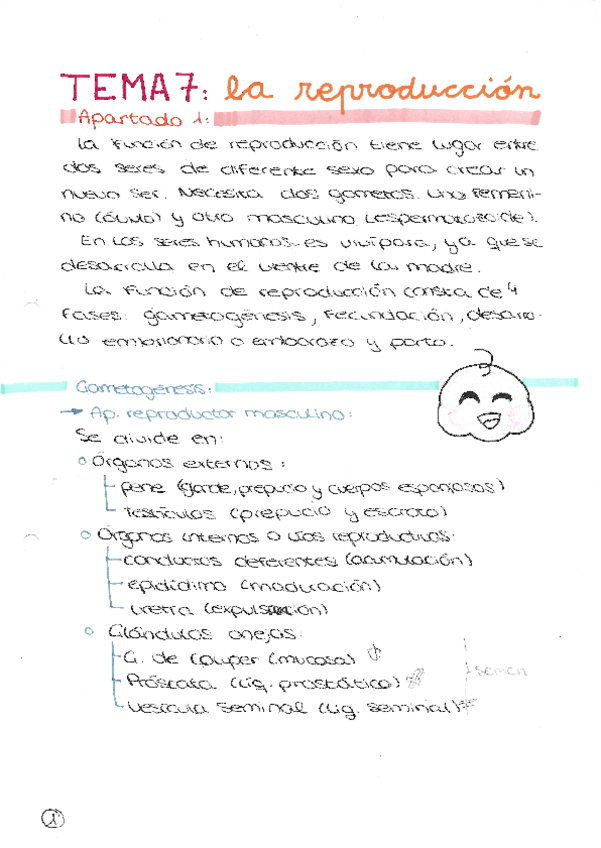 TEMA 7: la reproducción
Apartado 1:
La función de reproducción tiene lugar entre
dos seres de diferente sexo para crear un
nuevo ser. Necesita dos gametos. Uno femeni-
no (óvulo) y otro masculino (espermatozoide).
En los seres humanos es vivípara, ya que se
desarrolla en el vientre de la madre.
La función de reproducción consta de 4
fases: gametogénesis, fecundación, desarro-
llo embrionario o embarazo y parto.
Gametogénesis:
→ Ap. reproductor masculino:
Se divide en:
Órganos externos:
pene (glande, prepucio y cuerpos esponjosos)
Testículos (prepucio y escroto)
Órganos internos o vías reproductivas:
conductos deferentes (acumulación)
epidídimo (maduración)
uretra (expulsión)
Glándulas anejas:
G. de Couper (mucosa)
Próstata (líq. prostático)
Vesícula seminal (líq. seminal)
semen
1